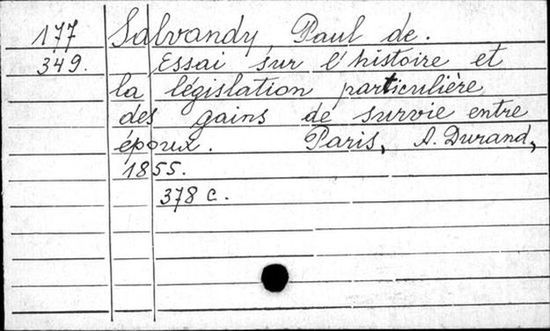 177 Salvandy Paul de.
349. Essai sur l'histoire et
la législation particulière
des gains de survie entre
époux. Paris, A. Durand,
1855.
378 c.